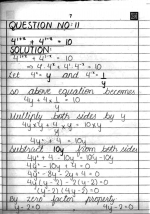 QUESTION NO: 11
4^(1+x) + 4^(1-x) = 10
SOLUTION:
4^(1+x) + 4^(1-x) = 10
⇒ 4·4^x + 4·4^-x = 10
Let 4^x = y and 4^-x = 1/y
so above equation becomes
4y + 4 × 1/y = 10
Multiply both sides by y
4y × y + 4/y × y = 10 × y
4y² + 4 = 10y
Subtract 10y from both sides
4y² + 4 - 10y = 10y - 10y
4y² - 10y + 4 = 0
4y² - 8y - 2y + 4 = 0
4y(y - 2) - 2(y - 2) = 0
(y - 2)(4y - 2) = 0
By zero factor property
y - 2 = 0 4y - 2 = 0